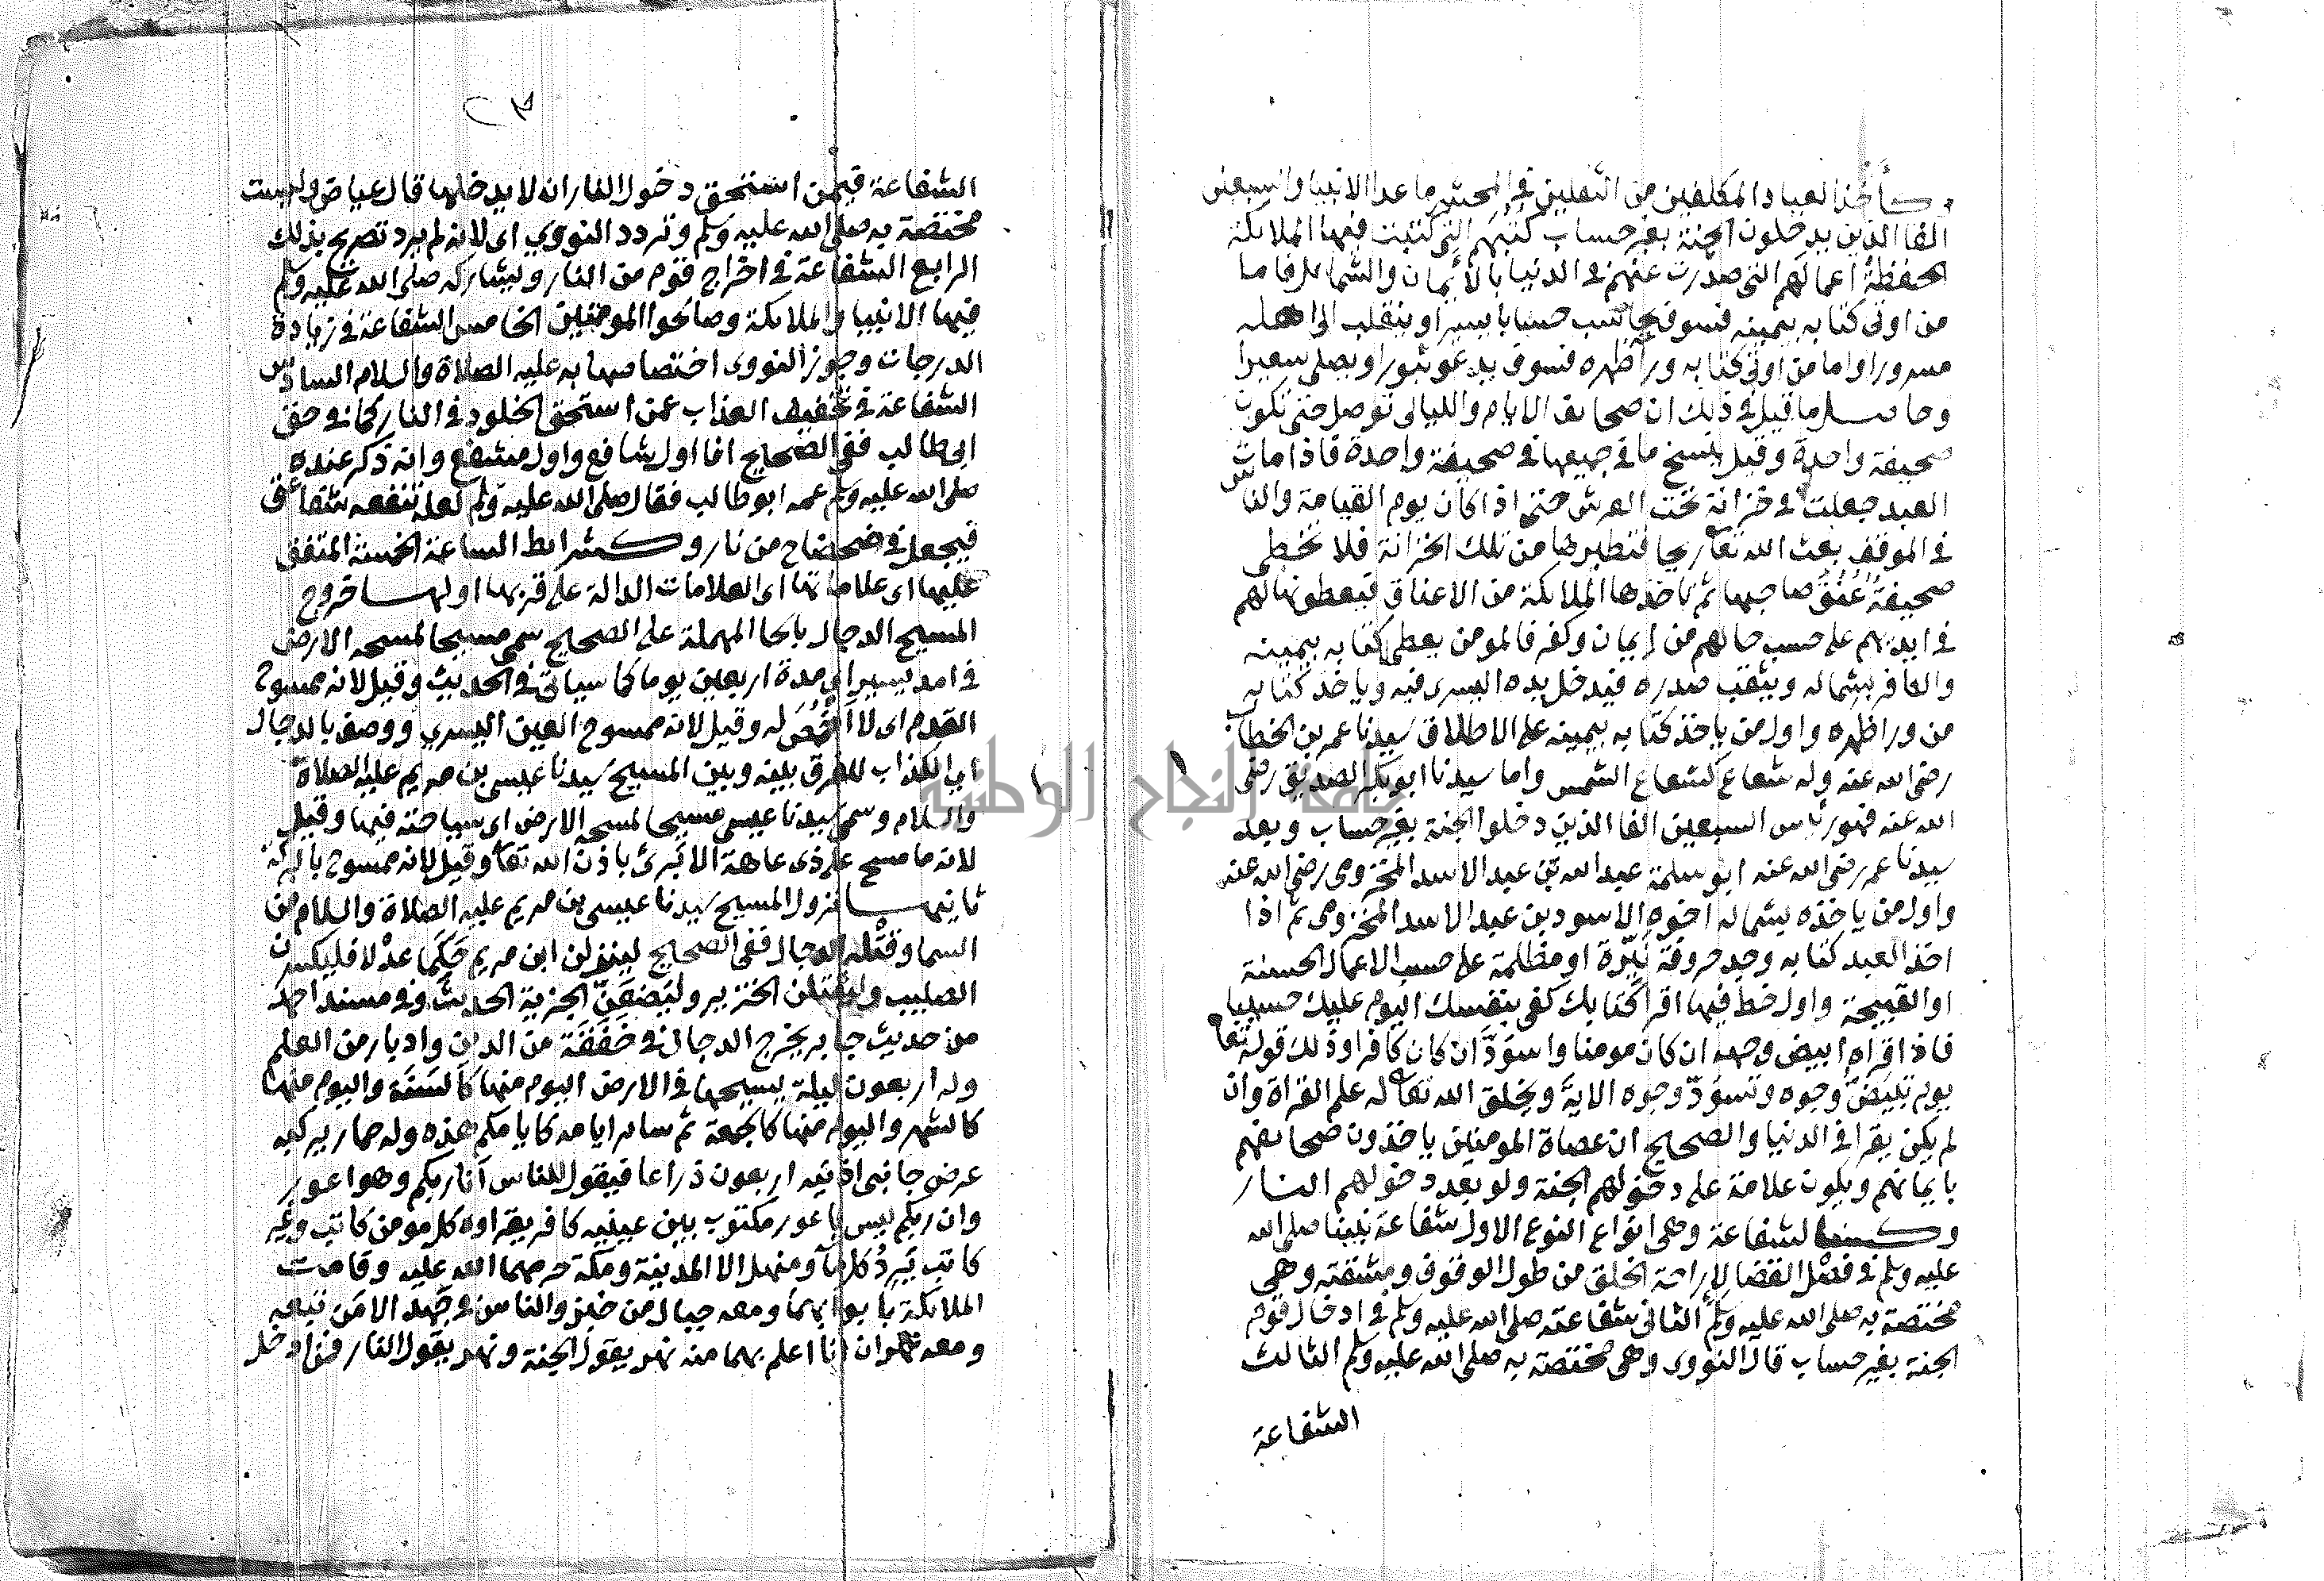 وكأخذ العباد المكلفين من الثقلين في المحشر ما عدا الانبيا والسبعين
الفا الذين يدخلون الجنة بغير حساب كتبهم التي كتبت فيها الملائكة
الحفظة اعمالهم التي صدرت عنهم في الدنيا بالايمان والشمائل فاما
من اوتي كتابه بيمينه فسوف يحاسب حسابا يسيرا وينقلب الى اهله
مسرورا واما من اوتي كتابه ورا ظهره فسوف يدعو ثبورا ويصلى سعيرا
وحاصل ما قيل في ذلك ان صحائف الايام والليالي توصل حتى تكون
صحيفة واحدة وقيل ينسخ ما في جميعها في صحيفة واحدة فاذا مات
العبد جعلت في خزانة تحت العرش حتى اذا كان يوم القيامة والناس
في الموقف بعث الله تعا ريحا فتطيرها من تلك الخزانة فلا تخطي
صحيفة عُنُقَ صاحبها ثم تاخذها الملائكة من الاعناق فيعطونها لهم
في ايديهم على حسب حالهم من ايمان وكفر فالمومن يعطى كتابه بيمينه
والكافر بشماله ويثقب صدره فيدخل يده اليسرى فيه وياخذ كتابه
من ورا ظهره واول من ياخذ كتابه بيمينه على الاطلاق سيدنا عمر بن الخطاب
رضي الله عنه وله شعاع كشعاع الشمس واما سيدنا ابوبكر الصديق رضي
الله عنه فهو رئاس السبعين الفا الذين دخلوا الجنة بغير حساب وبعد
سيدنا عمر رضي الله عنه ابو سلمة عبد الله بن عبد الاسد المخزومي رضي الله عنه
واول من ياخذه بشماله اخوه الاسود بن عبد الاسد المخزومي ثم اذا
اخذ العبد كتابه وجد حروفه نَيّرة او مظلمة على حسب الاعمال الحسنة
او القبيحة واول خط فيها اقرا كتابك كفى بنفسك اليوم عليك حسيبا
فاذا قراه ابيض وجهه ان كان مومنا واسوَدَّ ان كان كافرا وذلك قوله تعا
يوم تبيَضّ وجوه وتسوَدّ وجوه الاية ويخلق الله تعا له علم القراة وان
لم يكن يقرا في الدنيا والصحيح ان عصاة المومنين ياخذون صحائفهم
بايمانهم ويكون علامة على دخولهم الجنة ولو بعد دخولهم النار
وكشفاعة وهي انواع النوع الاول شفاعة نبينا صلى الله
عليه وسلم في فصل القضا لاراحة الخلق من طول الوقوف ومشقته وهي
مختصة به صلى الله عليه وسلم الثاني شفاعته صلى الله عليه وسلم في ادخال قوم
الجنة بغير حساب قال النووي وهي مختصة به صلى الله عليه وسلم الثالث
الشفاعة
الشفاعة فيمن استحق دخول النار انه لا يدخلها قال عياض وليست
مختصة به صلى الله عليه وسلم وتردد النووي اي لانه لم يرد تصريح بذلك
الرابع الشفاعة في اخراج قوم من النار ويشاركه صلى الله عليه وسلم
فيها الانبيا والملائكة وصالحوا المومنين الخامس الشفاعة في زيادة
الدرجات وجوز النووي اختصاصها به عليه الصلاة والسلام السادس
الشفاعة في تخفيف العذاب عمن استحق الخلود في النار كما في حق
ابي طالب ففي الصحيح انا اول شافع واول مشفع وانه ذكر عنده
صلى الله عليه وسلم عمه ابو طالب فقال صلى الله عليه وسلم لعله تنفعه شفاعتي
فيجعل في ضحضاح من نار وكشرائط الساعة الخمسة المتفق
عليها اي علاماتها اي العلامات الدالة على قربها اولها خروج
المسيح الدجال بالحا المهملة على الصحيح سمي مسيحا لمسحه الارض
في امد يسير اي مدة اربعين يوما كما سياتي في الحديث وقيل لانه ممسوح
القدم اي لا اَخْمُصَ له وقيل لانه ممسوح العين اليسري ووصف بالدجال
اي الكذاب للفرق بينه وبين المسيح سيدنا عيسى بن مريم عليه الصلاة
والسلام وسمي سيدنا عيسى مسيحا لمسحه الارض اي سياحته فيها وقيل
لانه ما مسح على ذي عاهة الا بَرِئَ باذن الله تعا وقيل لانه ممسوح بالبركة
ثانيها نزول المسيح سيدنا عيسى بن مريم عليه الصلاة والسلام من
السما وقتله الدجال ففي الصحيح لينزلن ابن مريم حَكَما عدْلا فليكسرن
الصليب وليقتلن الخنزير وليَضَعَنَّ الجزية الحديث وفي مسند احمد
من حديث جابر يخرج الدجال في خَفَقَة من الدين وادبار من العلم
وله اربعون ليلة يسيحها في الارض اليوم منها كالسَنَة واليوم منها
كالشهر واليوم منها كالجمعة ثم سائر ايامه كايامكم هذه وله حمار يركبه
عرض ما بين اذنيه اربعون ذراعا فيقول للناس انا ربكم وهو اعور
وان ربكم ليس باعور مكتوب بين عينيه كافر يقراه كل مومن كاتب وغير
كاتب يَرِدُ كل مآ ومنهل الا المدينة ومكة حرمهما الله عليه وقامت
الملائكة بابوابهما ومعه جبال من خبز والناس في جَهد الا مَن تبعه
ومعه نهران انا اعلم بهما منه نهر يقول الجنة ونهر يقول النار فمن ادخل
جامعة النجاح الوطنية